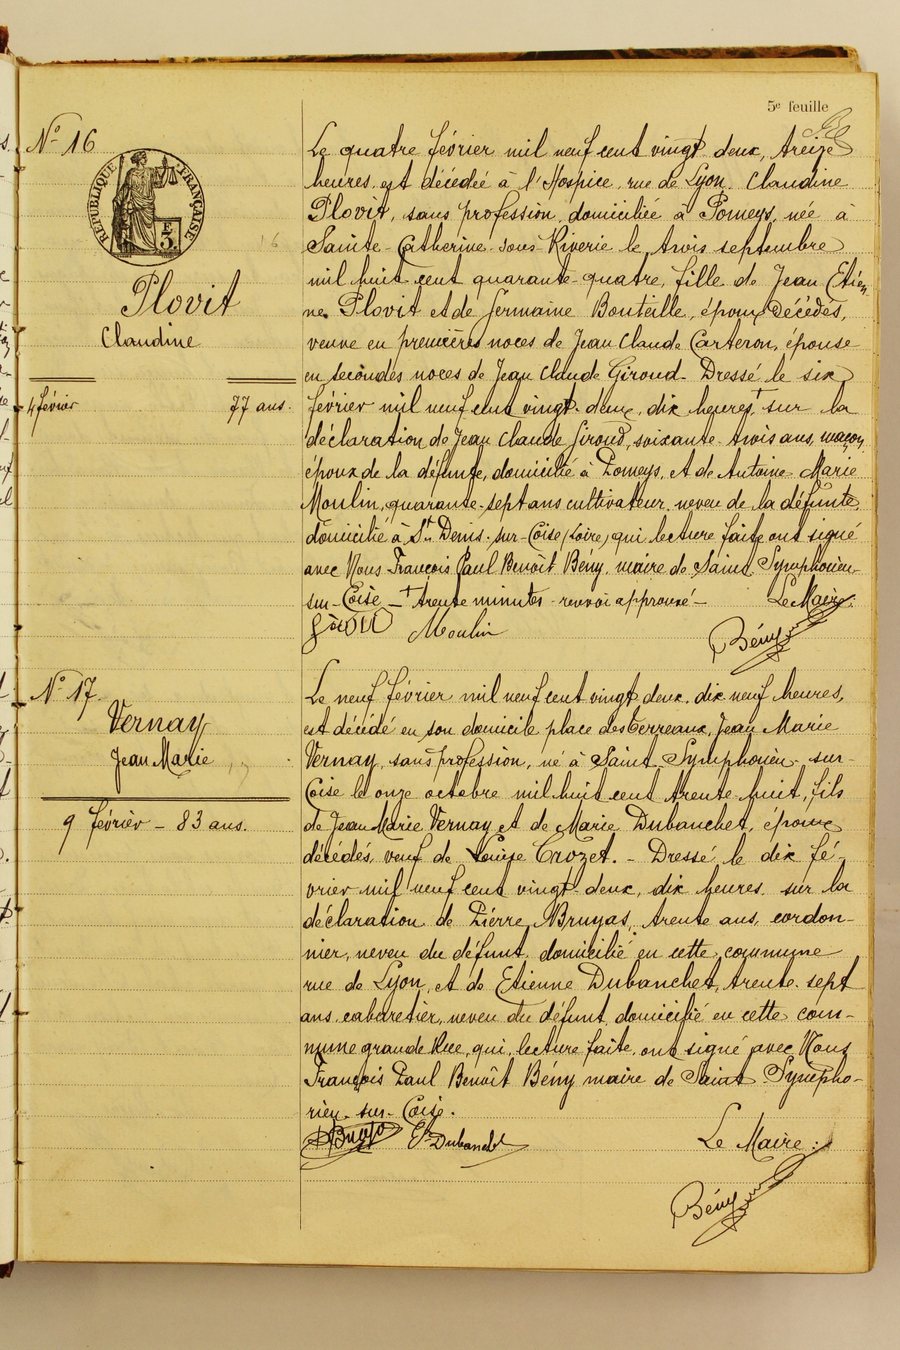 5e feuille
No 16
RÉPUBLIQUE FRANÇAISE
E 3
Plovit
Claudine
4 février 77 ans.
Le quatre février mil neuf cent vingt deux, treize
heures, est décédée à l'Hospice rue de Lyon, Claudine
Plovit, sans profession, domiciliée à Pomeys, née à
Sainte-Catherine-sous-Riverie le trois septembre
mil huit cent quarante-quatre, fille de Jean Etien
ne Plovit et de Germaine Bouteille, époux décédés,
veuve en premières noces de Jean Claude Carteron, épouse
en secondes noces de Jean Claude Giroud. Dressé le six
février mil neuf cent vingt-deux, dix heures, + sur la
déclaration de Jean Claude Giroud, soixante-trois ans, maçon,
époux de la défunte, domicilié à Pomeys, et de Antoine Marie
Moulin, quarante-sept ans cultivateur, neveu de la défunte,
domicilié à St Denis-sur-Coise (Loire), qui lecture faite ont signé
avec Nous François Paul Benoît Bény, maire de Saint Symphorien-
sur-Coise - + trente minutes - renvoi approuvé - Le Maire:
Moulin
Bény
No 17.
Vernay
Jean Marie
9 février - 83 ans.
Le neuf février mil neuf cent vingt deux, dix neuf heures,
est décédé en son domicile place des Terreaux, Jean Marie
Vernay, sans profession, né à Saint-Symphorien-sur-
Coise le onze octobre mil huit cent trente-huit, fils
de Jean Marie Vernay et de Marie Dubanchet, époux
décédés, veuf de Louise Crozet. - Dressé le dix fé-
vrier mil neuf cent vingt-deux, dix heures sur la
déclaration de Pierre Bruyas, trente ans, cordon-
nier, neveu du défunt, domicilié en cette commune
rue de Lyon, et de Etienne Dubanchet, trente-sept
ans, cabaretier, neveu du défunt, domicilié en cette com-
mune grande Rue, qui, lecture faite, ont signé avec Nous
François Paul Benoît Bény maire de Saint-Sympho-
rien-sur-Coise.
Et Dubanchet Le Maire:
Bény